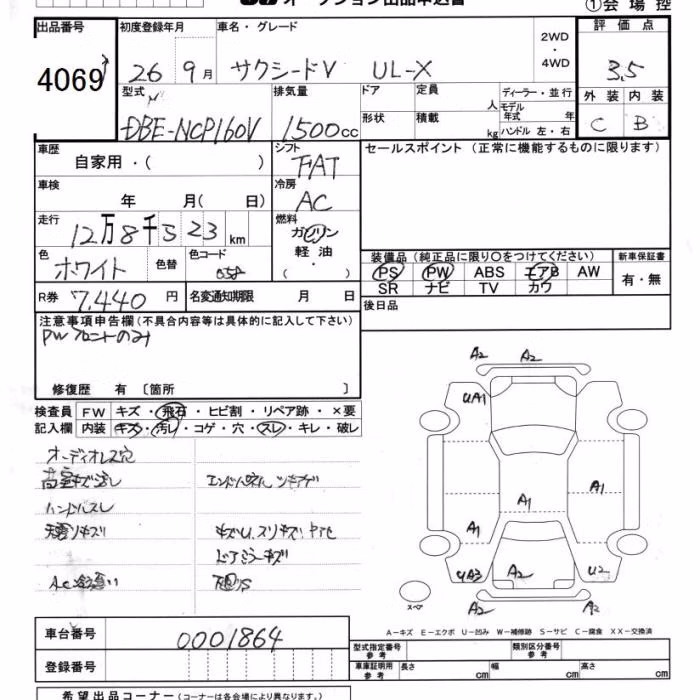 オークション出品申込書
①会場控
出品番号
4069
初度登録年月
26 9月
車名・グレード
サクシードV UL-X
2WD
・
4WD
評価点
3.5
外装 内装
C B
型式
DBE-NCP160V
排気量
1500cc
ドア
形状
定員
人
積載
kg
ディーラー・並行
モデル
年式 年
ハンドル 左・右
車歴
自家用・( )
シフト
FAT
車検
年 月( 日)
冷房
AC
走行
12万8千523km
燃料
ガソリン
軽油・
( ・ )
色
ホワイト
色替
色コード
058
R券
7,440円
名変通知期限 月 日
セールスポイント(正常に機能するものに限ります)
装備品(純正品に限り○をつけてください)
PS PW ABS エアB AW
SR ナビ TV カワ
新車保証書
有・無
後日品
注意事項申告欄(不具合内容等は具体的に記入して下さい)
PWフロントのみ
修復歴 有 〔箇所 〕
検査員
記入欄
FW キズ・飛石・ヒビ割・リペア跡・×要
内装 キズ・汚レ・コゲ・穴・スレ・キレ・破レ
オーディオレス穴
ハンドルスレ
ドアミラーキズ
A2 A2
UA1
A1
A1
A1
UA3 A2 U2
A2 A2
スペア
A-キズ E-エクボ U-凹み W-補修跡 S-サビ C-腐食 XX-交換済
車台番号
0001864
登録番号
型式指定番号
参考
類別区分番号
参考
車庫証明用
参考
長さ cm 幅 cm 高さ cm
希望出品コーナー(コーナーは各会場により異なります。)